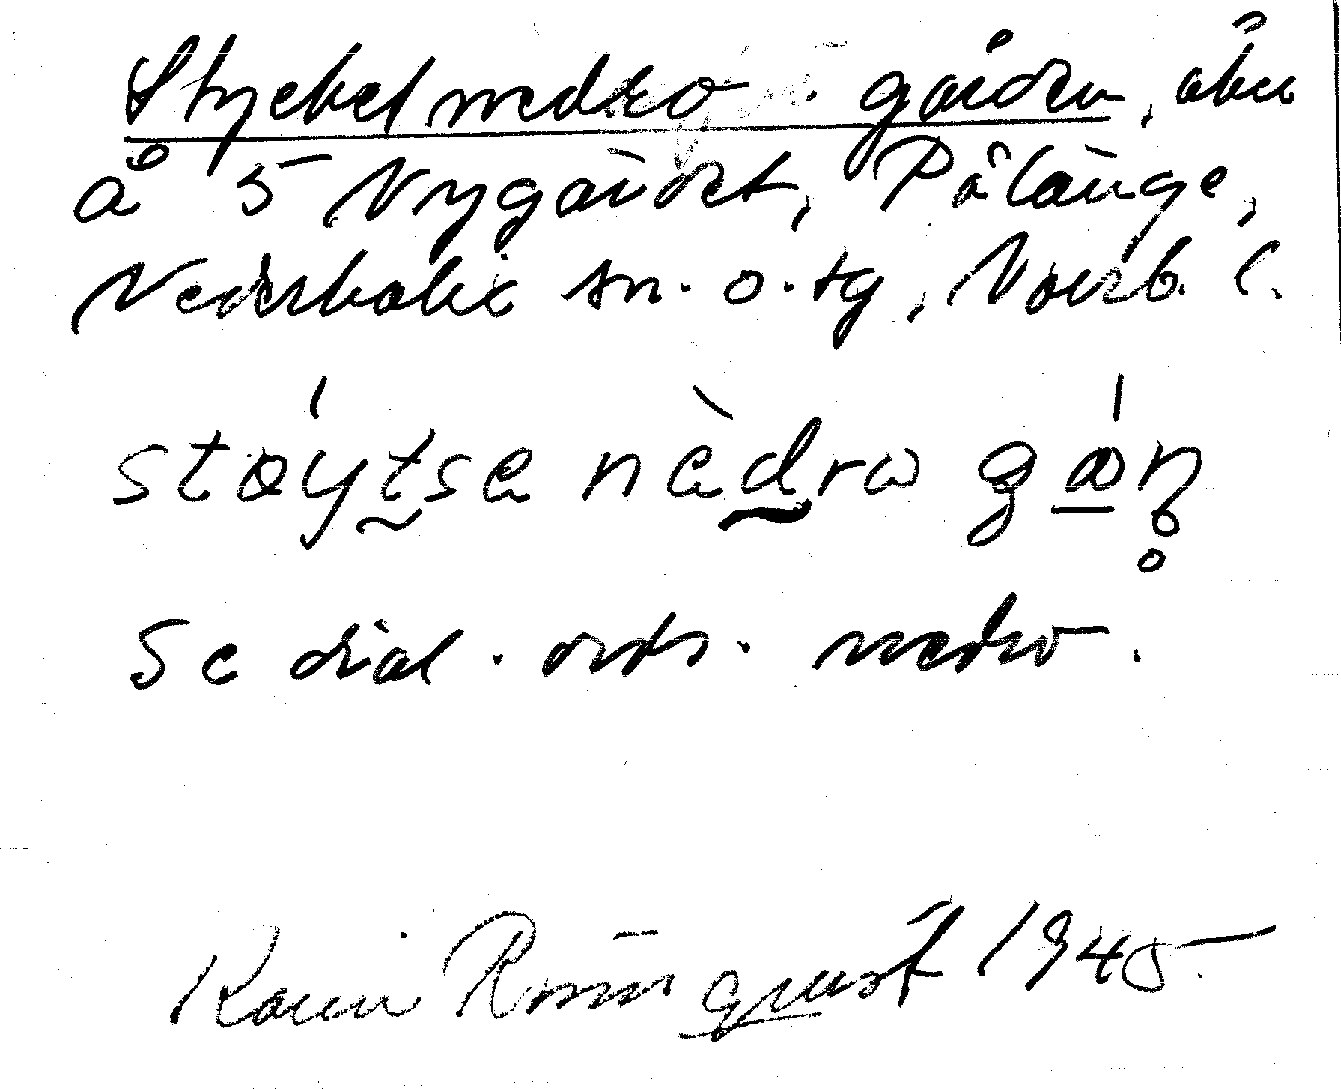 Stycket nedro. gården, åbu
å 5 Nygårdet, Pålänge,
Nederkalix sn. o. tg, Norrb. l.
støytse nèdro gåṇ
Se dial. ords. nedro.
Karin Rönnquist 1945.